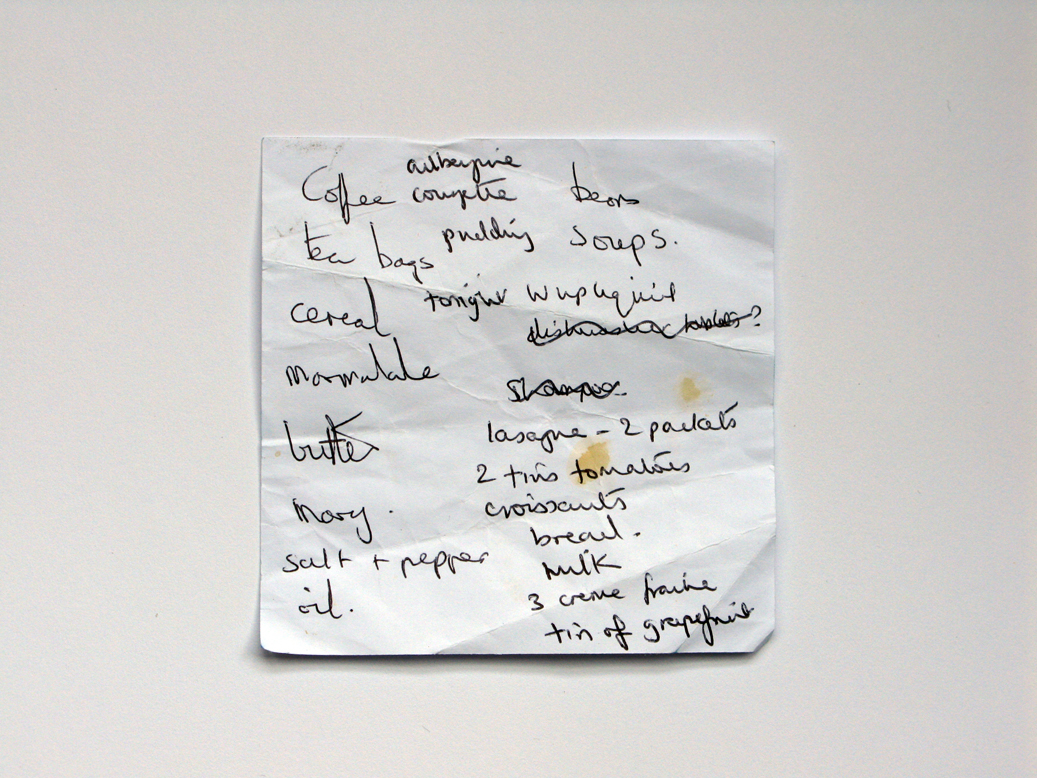 aubergine
Coffee courgette beans
pudding soups.
tea bags
tonight W up liquid
cereal
dishwasher tablets?
marmalade
shampoo
butter
lasagne - 2 packets
2 tins tomatoes
croissants
mary.
bread.
salt + pepper
milk
oil.
3 creme fraiche
tin of grapefruit